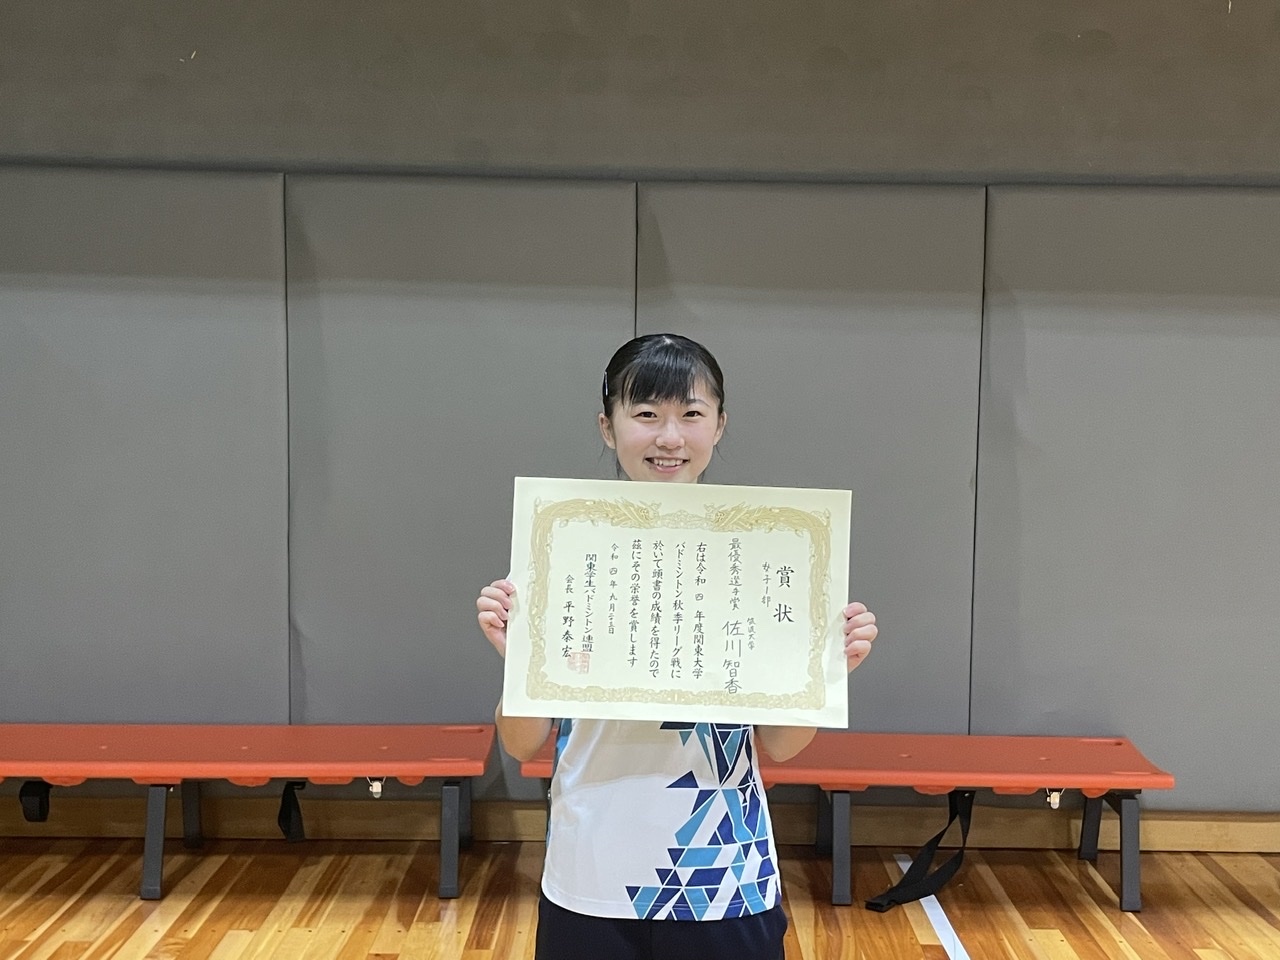 賞状
女子1部
最優秀選手賞
筑波大学
佐川智香
右は令和四年度関東大学
バドミントン秋季リーグ戦に
於いて頭書の成績を得たので
茲にその栄誉を賞します
令和四年九月二十五日
関東学生バドミントン連盟
会長 平野泰宏